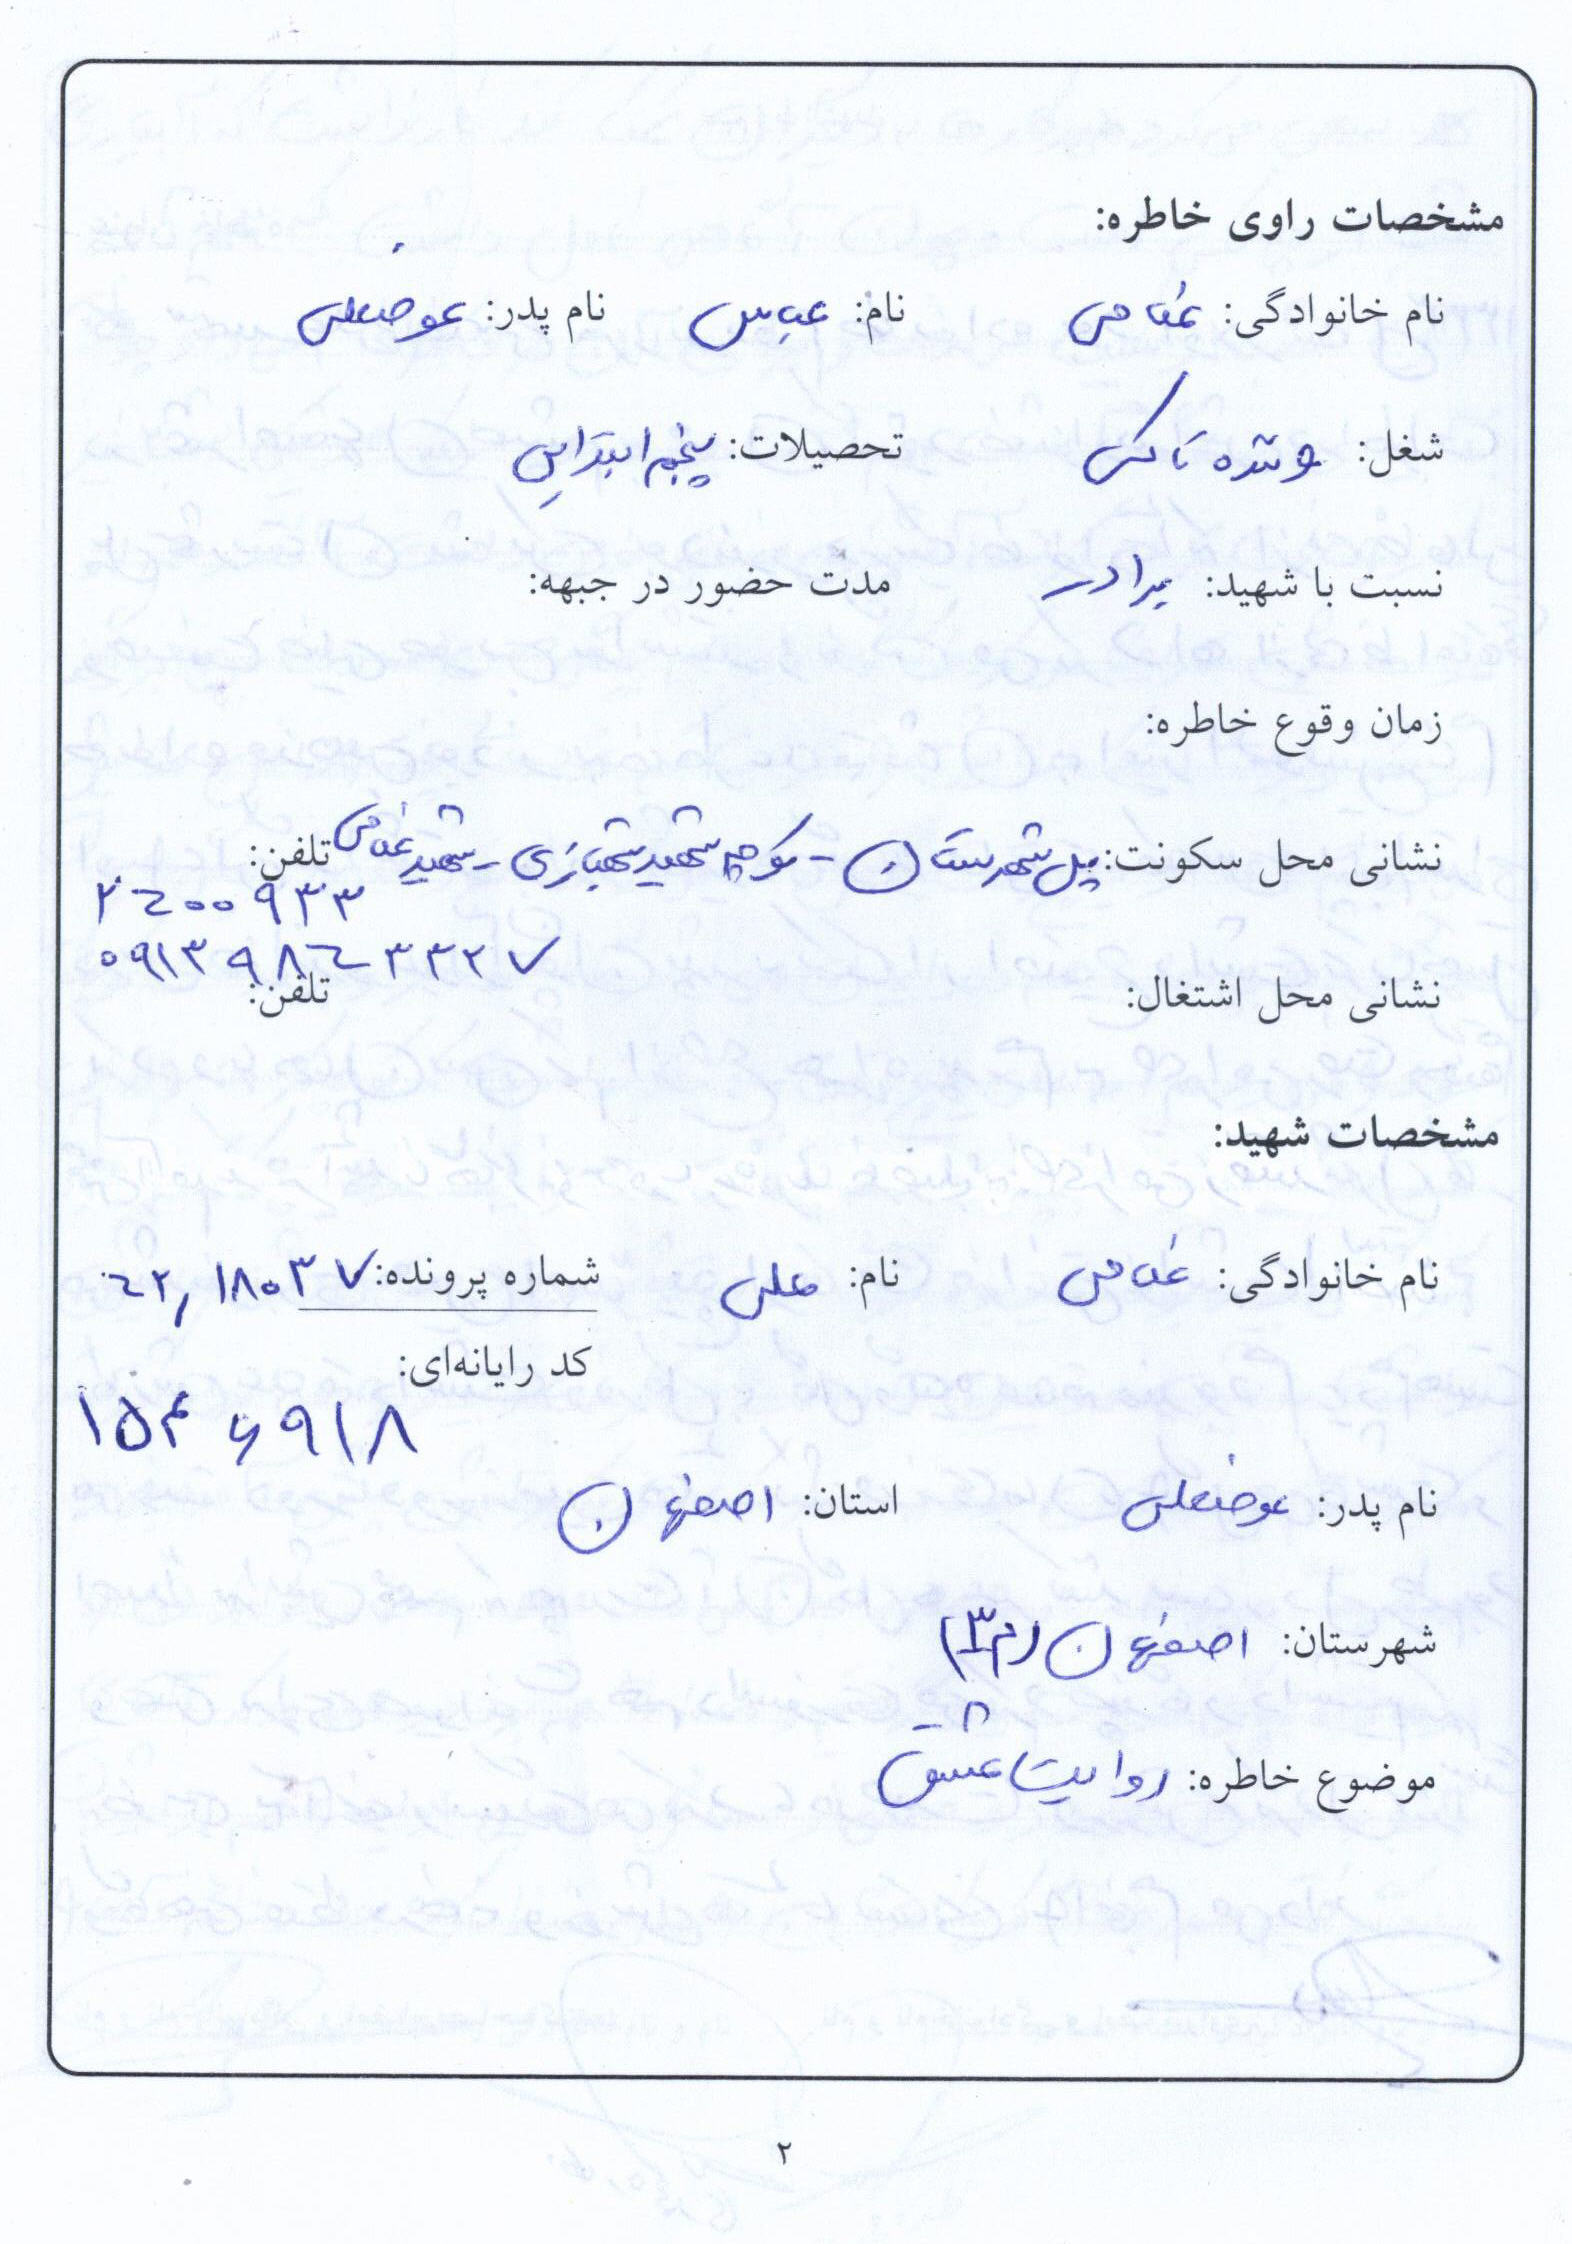 مشخصات راوی خاطره:
نام خانوادگی: غلامی نام: عباس نام پدر: عوضعلی
شغل: راننده تاکسی تحصیلات: پنجم ابتدایی
نسبت با شهید: برادر مدت حضور در جبهه:
زمان وقوع خاطره:
نشانی محل سکونت: پل شهرستان - کوچه شهید شهبازی - شهید غلامی تلفن:
۲۶۰۰۹۳۳
۰۹۱۳۹۸۶۳۳۲۷
نشانی محل اشتغال: تلفن:
مشخصات شهید:
نام خانوادگی: غلامی نام: علی شماره پرونده: ۶۲,۱۸۰۳۷
کد رایانه‌ای:
۱۵۴۶۹۱۸
نام پدر: عوضعلی استان: اصفهان
شهرستان: اصفهان (م۳)
موضوع خاطره: روایت عشق
۲